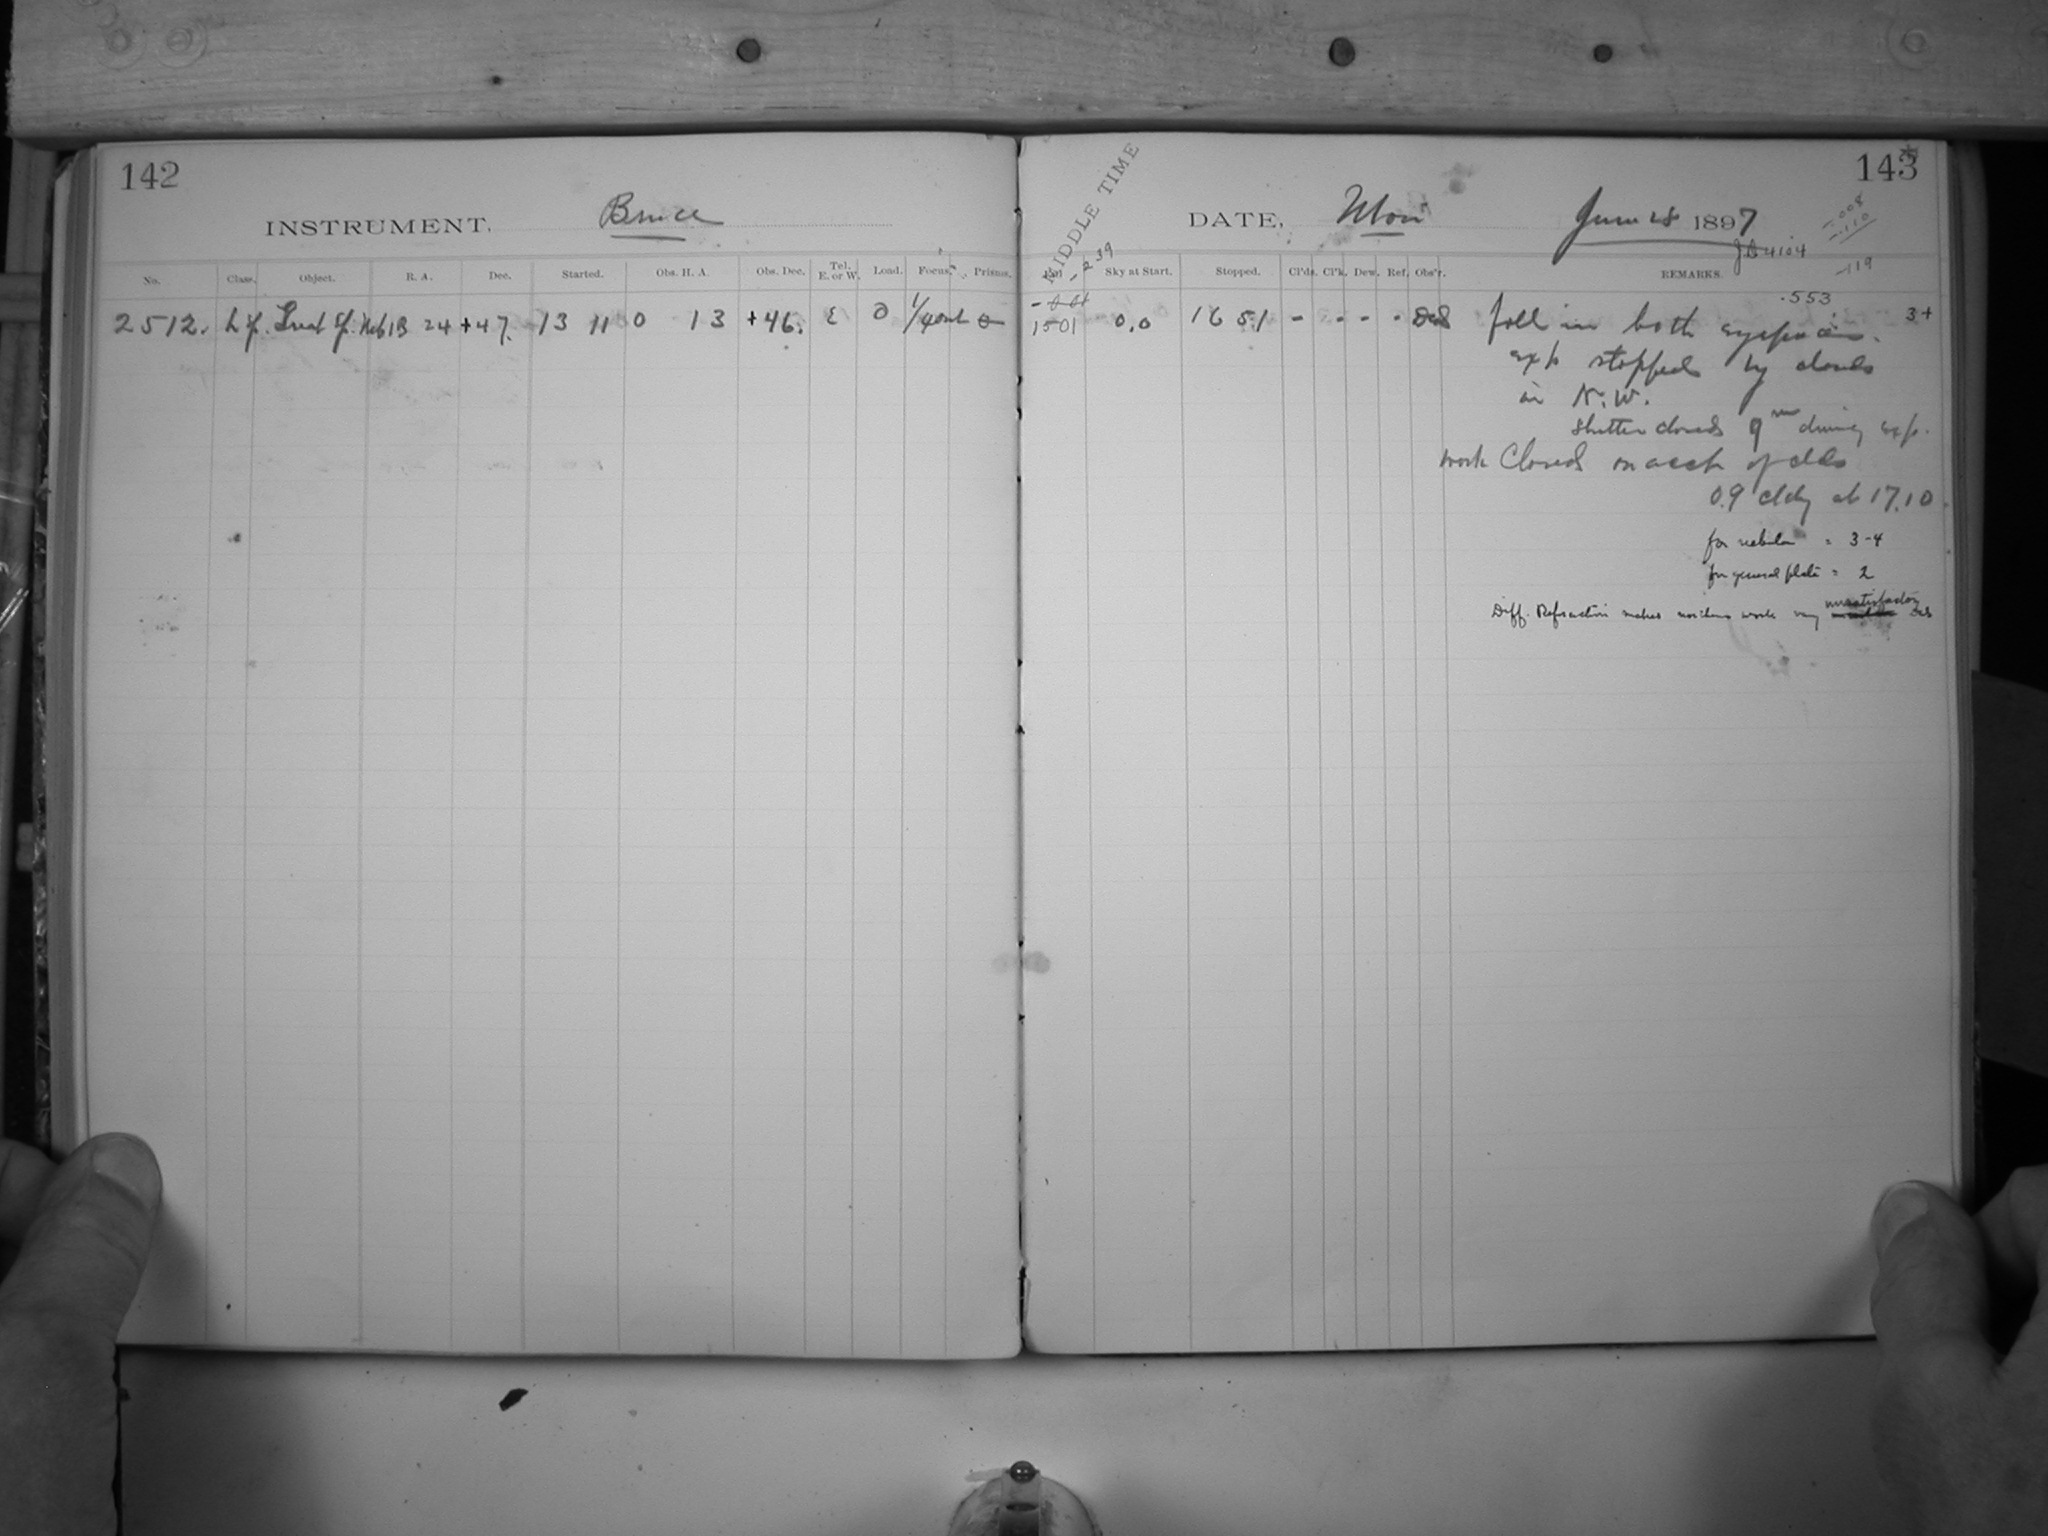 142
INSTRUMENT, Bruce
No. Class. Object. R. A. Dec. Started. Obs. H. A. Obs. Dec. Tel. E. or W. Load. Focus. Prisms.
2512. +47. 13 11 0 13 +46. E
143
MIDDLE TIME
DATE, Mon June 28 1897
J.D. 4104
-.008
-.110
-119
-239
Sky at Start. Stopped. Cl'ds. Cl'k. Dew. Ref. Obs'r. REMARKS.
.553
1501 0.0 16 51 - - - - foll in both eyepieces. 3+
exp stopped by clouds
in N.W.
Shutter closed 9m during exp.
work Closed on acct of clds
0.9 cldy at 17.10
for nebula = 3-4
for general plate = 2
Diff. Refraction makes northern work very unsatisfactory